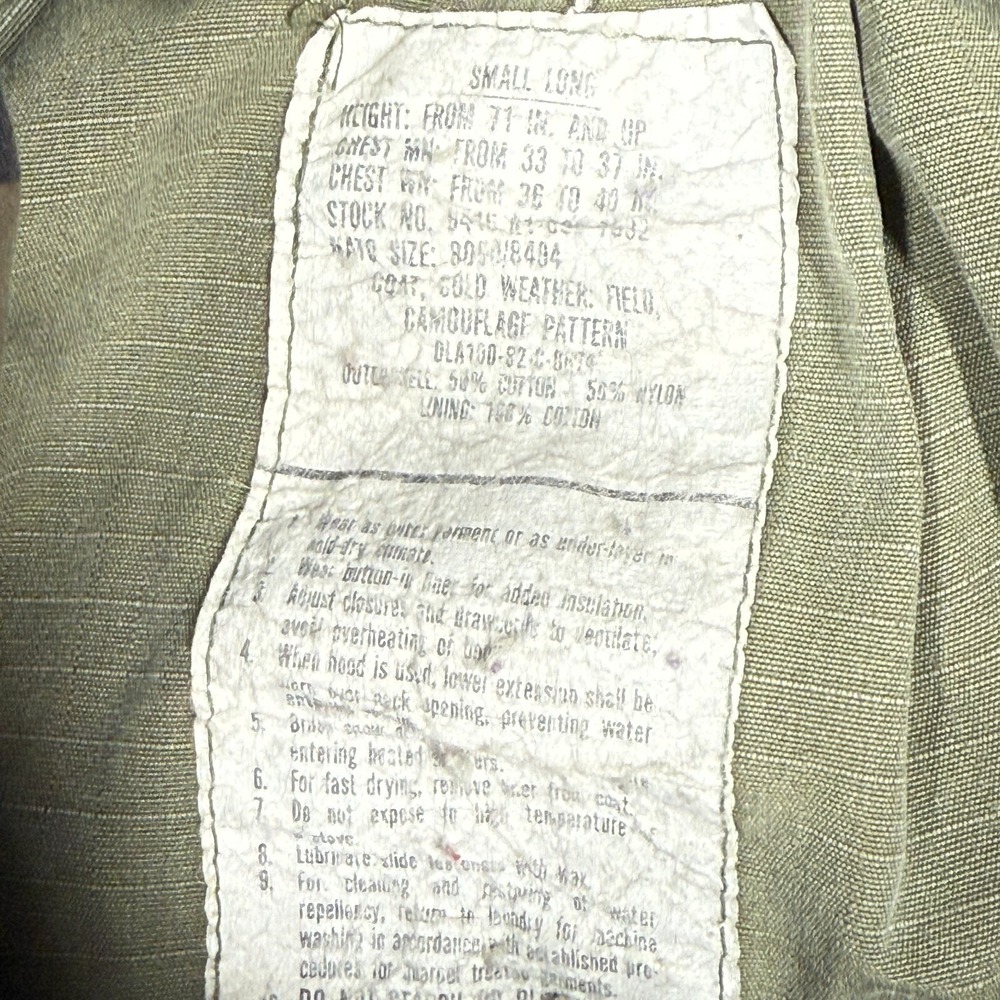 SMALL LONG
HEIGHT: FROM 71 IN. AND UP
CHEST MN: FROM 33 TO 37 IN.
CHEST WN: FROM 36 TO 40 IN.
STOCK NO. 8415
NATO SIZE: 8094
COAT, COLD WEATHER: FIELD,
CAMOUFLAGE PATTERN
DLA100-82-C-
OUTER SHELL: 50% COTTON 50% NYLON
LINING: 100% COTTON
1 Wear as outer garment or as under-layer in
cold-dry climate.
2 Wear button-in liner for added insulation.
3 Adjust closures and drawcords to ventilate,
avoid overheating of body
4. When hood is used, lower extension shall be
worn over neck opening, preventing water
entering
5. Brush snow
entering heated shelters.
6. For fast drying, remove liner from coat.
7. Do not expose to high temperature
stove
8. Lubricate slide fasteners with wax.
9. For cleaning and restoring of water
repellency, return to laundry for machine
washing in accordance with established pro-
cedures for quarpel treated garments.
10 DO NOT STARCH OR BL